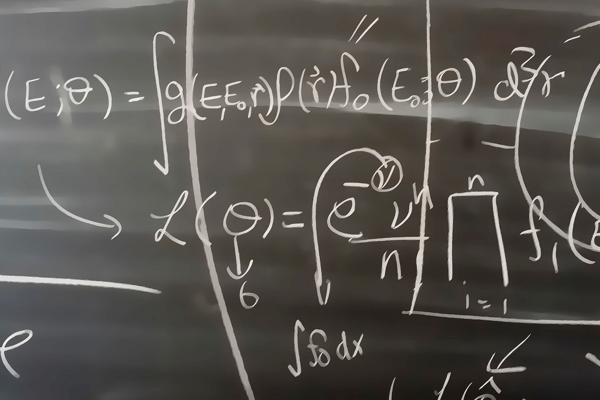 (E;θ) = ∫ g(E,E₀,r⃗) ρ(r⃗) f₀(E₀;θ) d³r
ℒ(θ) = e^{-ν} ν^n / n ∏_{i=1}^{n} f₁(
6
∫f₀dx
e